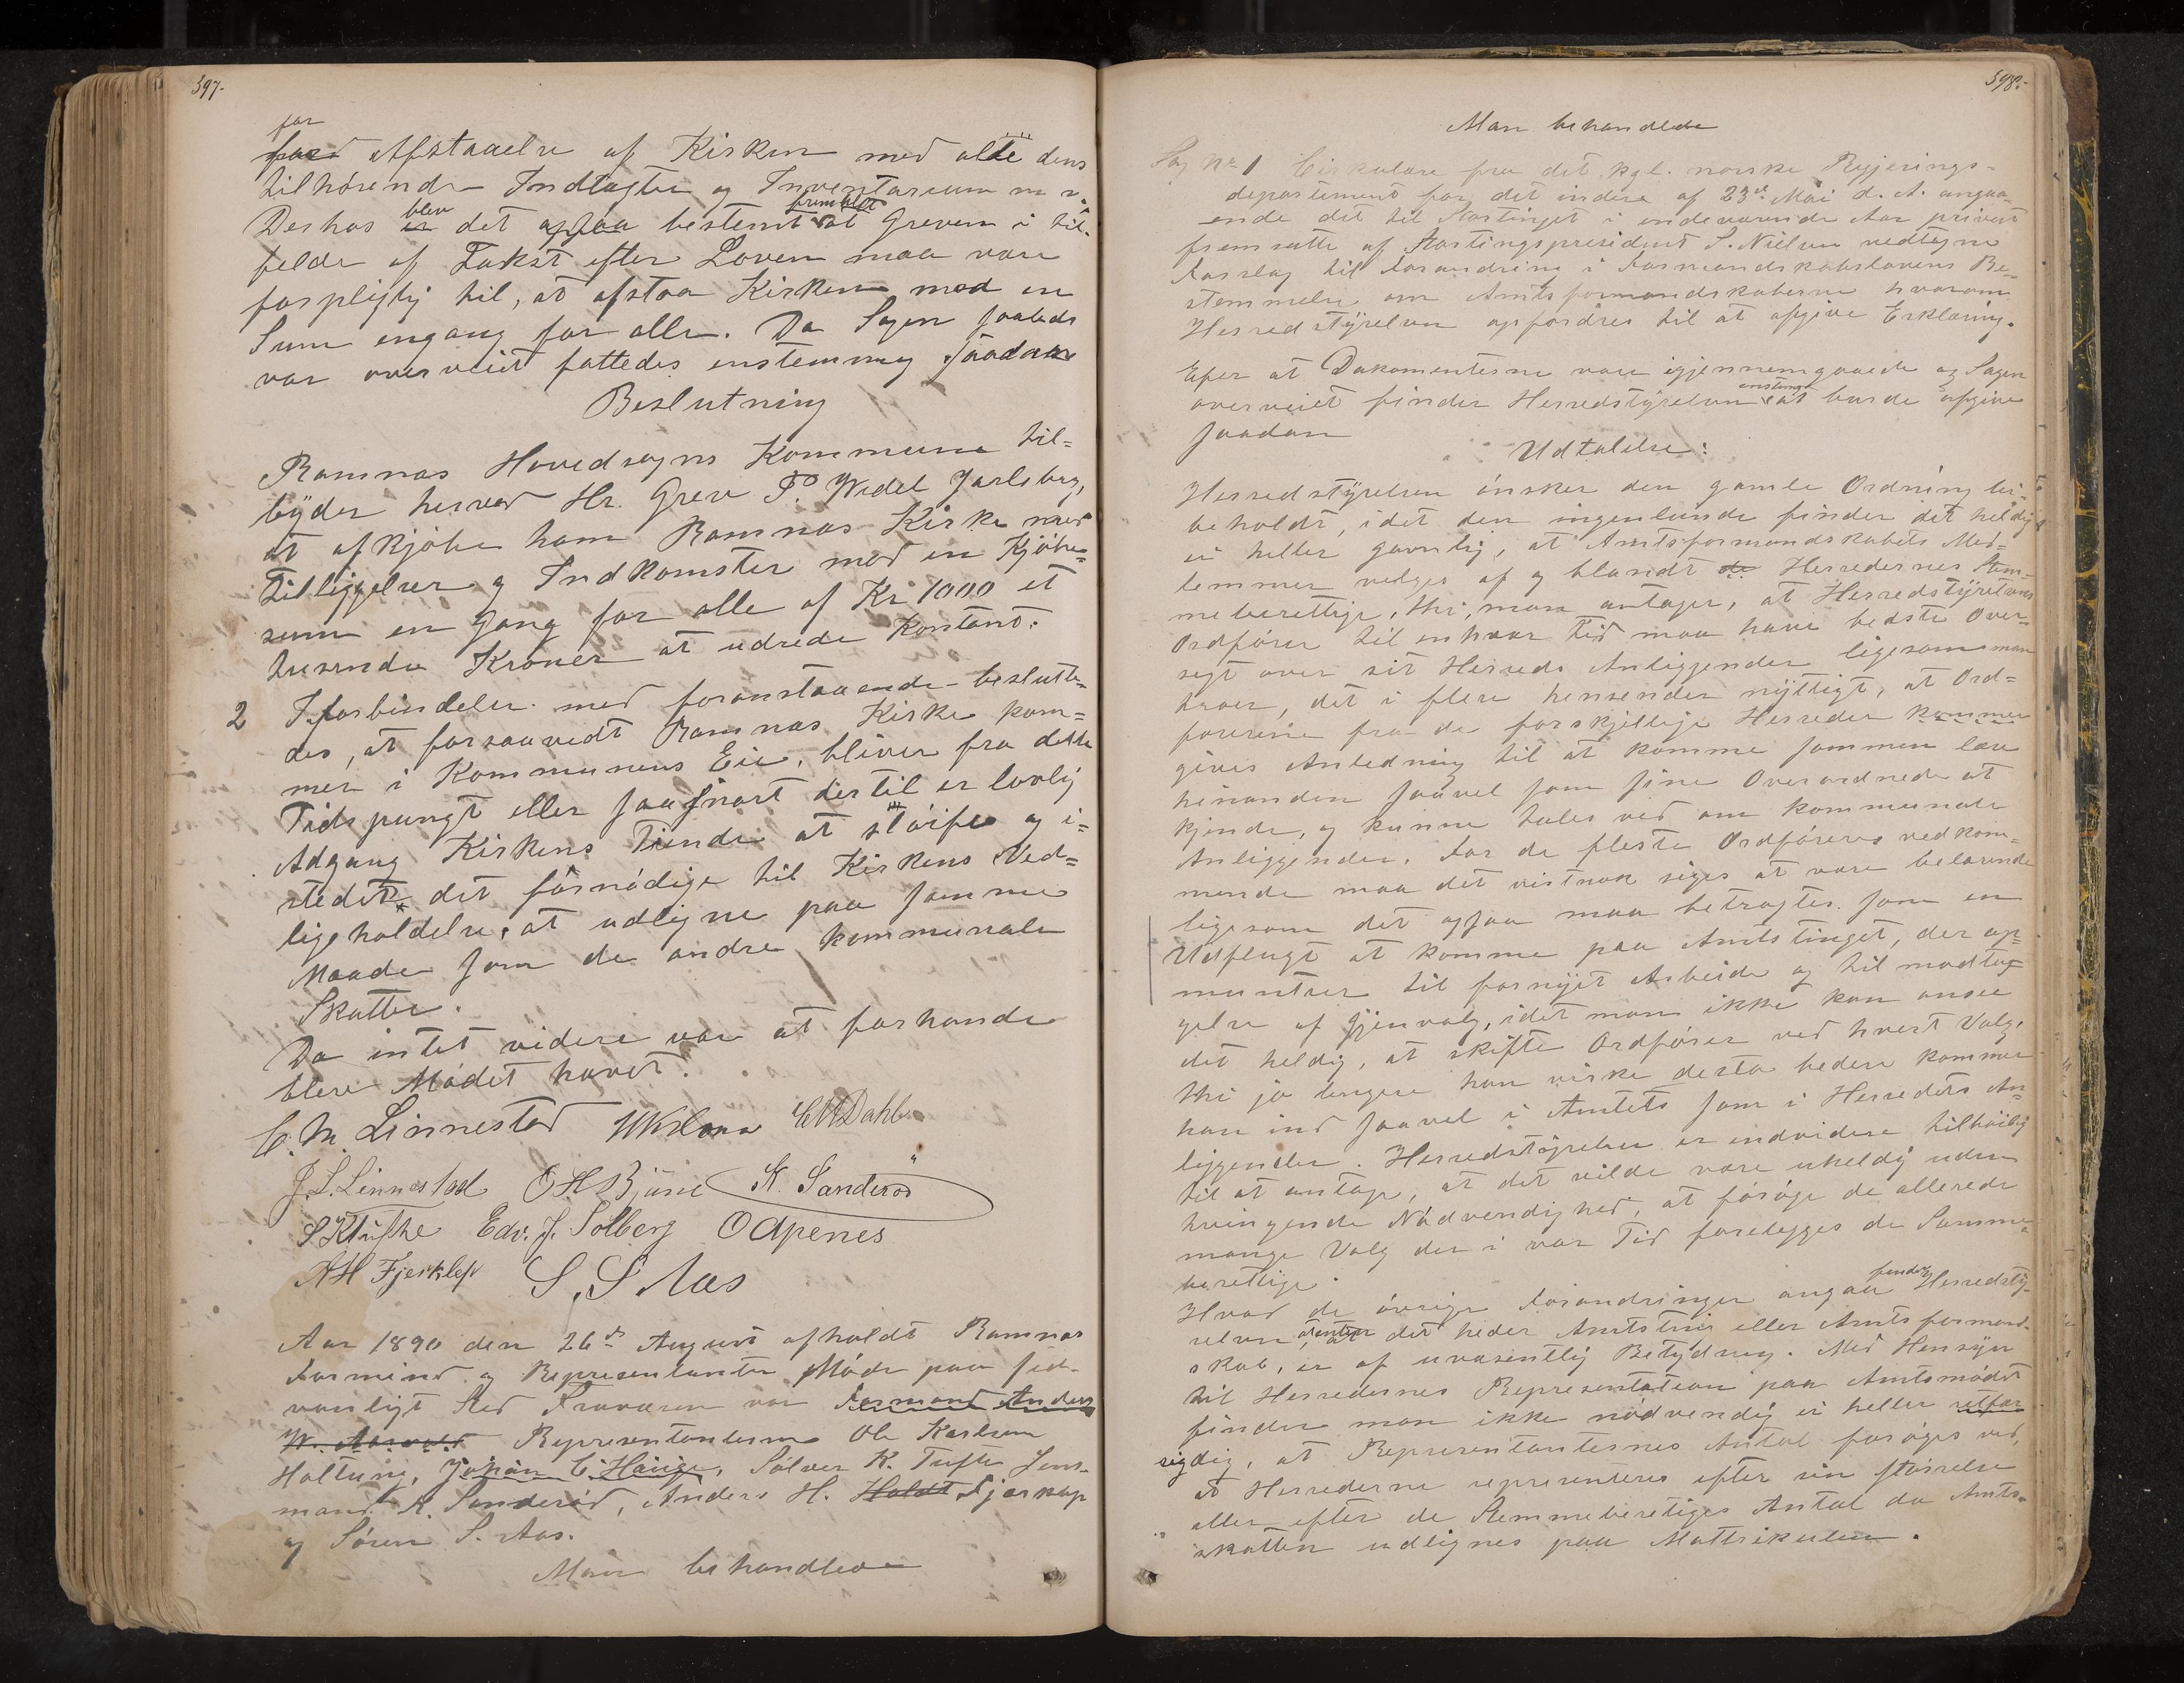 597.
for
ford Afstaaelse af Kirken med alle dens
tilhörende Indtægter og Inventarium m.v.
blev fremholdt
Deshos er det ogsaa bestemt at Greven i til-
felde af Takst efter Loven maa være
forpligtig til, at afstaa Kirken mod en
Sum engang for alle. Da Sagen saaledes
var overveiet fattedes enstemmig saadan
Beslutning
Ramnæs Hovedsogns Kommune til=
byder herved Hr. Greve P. Wedel Jarlsberg,
at afkjöbe ham Ramnæs Kirke med
Tilliggelser og Indkomster mod en Kjöbe=
sum en Gang for alle af Kr 1000 et
tusende Kroner at udrede Kontant.
2 I forbindelse med foranstaaende beslutte-
des, at forsaavidt Ramnæs Kirke kom=
mer i Kommunens Eie, bliver fra dette
Tidspungt eller saasnart dertil er lovlig
Adgang Kirkens Tiende at slöife og i=
stedet det fornödige til Kirkens Ved=
ligeholdelse, at udligne paa samme
Maade som de andre kommunale
Skatter.
Da intet videre var at forhandle
blev Mödet hævet.
C. M. Linnestad CMDahl
J. L. Linnestad O H Bjüne K. Sanderöd
S K Tufte Edv. J. Solberg O Apenes
A H Fjerklep S. S Aas
Aar 1890 den 26de August afholdt Ramnæs
Formænd og Representanter Möde paa sed-
vanligt Sted Fraværende var Formand Anders
W. Aasrød Representanterne Ole Karlsen
Holtung, Johan C. Hauge, Sölver K. Tufte Jens-
mand K. Sanderöd, Anders H. Holdt Fjærkep
og Sören S. Aas.
Man behandlede
598.
Man behandlede
Sag No 1 Cirkulære fra det kgl. norske Regjerings-
departement for det indre af 23de Mai d. A. angaa-
ende det til Stortinget i indeværende Aar privat
fremsatte af Stortingspresident S. Nielsen vedtagne
Forslag til Forandring i Formandskabslovens Be-
stemmelse om Amtsformandskaberne hvorom
Herredstyrelsen opfordres til at afgive Erklæring.
Efter at Dokumenterne vare igjennemgaaede og Sagen
enstemmig
overveiet finder Herredstyrelsen at burde afgive
saadan
Udtalelse:
Herredstyrelsen önsker den gamle Ordning bi-
beholdt, idet den ingenlunde finder det heldig
ei heller gavnlig, at Amtsformandskabets Med=
lemmer velges af og blandt de Herredernes Stem-
meberettige, thi, man antager, at Herredstyrelsens
Ordförer til enhver Tid maa have bedste Over-
sigt over sit Herreds Anliggender ligesom man
troer, det i flere hensender nyttigt, at Ord=
förerne fra de forskjellige Herreder kommer
gives Anledning til at komme sammen lære
hinanden saavel som sine Overordnede at
kjende, og kunne tales ved om kommunale
Anliggender. For de fleste Ordföreres vedkom=
mende maa det vistnok siges at være belærende
ligesom det ogsaa maa betragtes som en
Udflugt at komme paa Amtstinget, der op=
muntrer til fornyet Arbeide og til modtag-
gelse af Gjenvalg, idet man ikke kan ansee
det heldig, at skifte Ordförer ved hvert Valg,
thi jo lengere han virke desto bedere kommer
han ind saavel i Amtets som i Herredets An=
liggender. Herredstyrelsen er endvidere tilböielig
til at antage, at det vilde være uheldig uden
tvingende Nödvendighed, at foröge de allerede
mange Valg der i vor Tid forelegges de Stemme-
berettige.
finder
Hvad de övrige Forandringer angaa Herredsty-
relsen, enten det heder Amtsting eller Amtsformand-
skab, er af uvæsentlig Betydning. Med Hensyn
til Herredernes Representation paa Amtsmödet
finder man ikke nödvendig ei heller retfær
digdig, at Representanternes Antal foröges ved,
at Herrederne representeres efter sin störrelse
eller efter de Stemmeberetiges Antal da Amts-
skatten udlignes paa Mattrikulen.